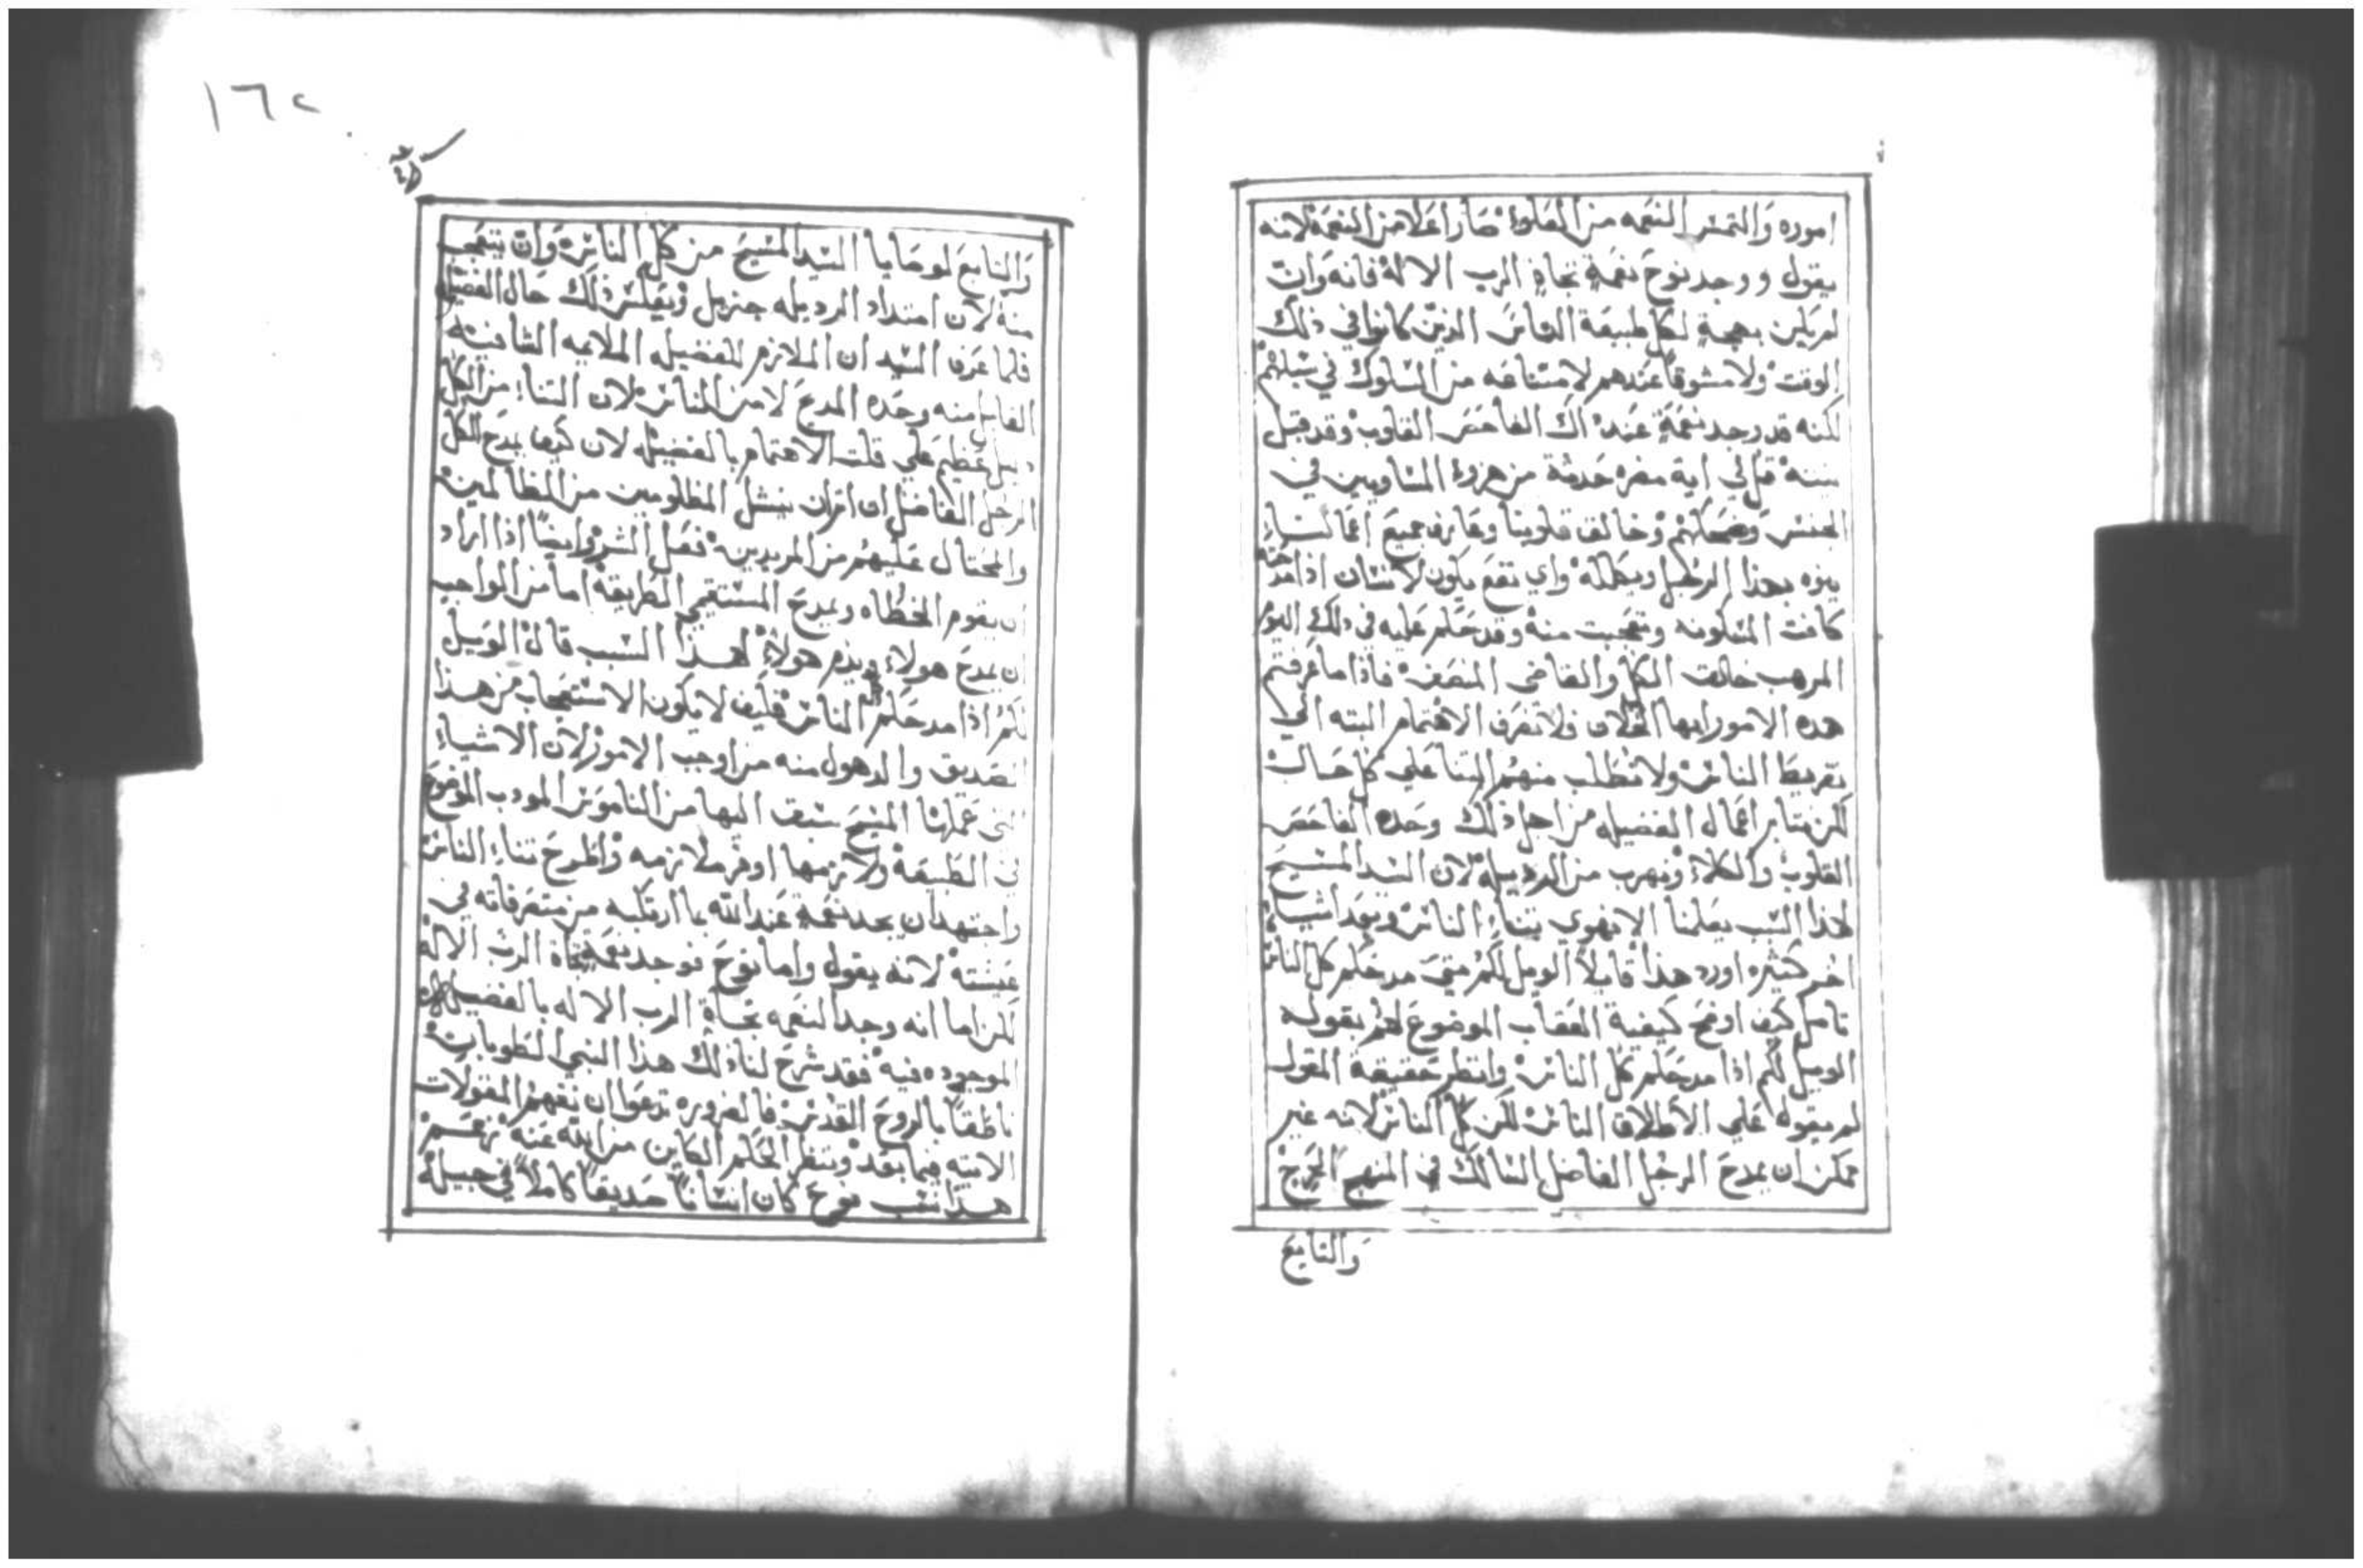 اموره والتمس النعمه من العلوا صار اعلا من النعمة لانه
يقول ووجد نوح نعمة تجاه الرب الاله فانه وان
لم يكن بهجة لكل طبيعة الناس الذين كانوا في ذلك
الوقت ولا مشوقاً عندهم لامتناعه من السلوك في سبلهم
لكنه قد وجد نعمة عند الفاحص القلوب وقد قبل
قل لي اية مضره حدثة من هزوء المساويين في
الجنس وضحكهم وخالق قلوبنا وعارف جميع اعمالنا
ينوه بهذا الرجل ويكلله واي نفع يكون للانسان اذا مدحته
كافت المسكونه وتعجبت منه وقد حكم عليه في ذلك اليوم
المرهب خالق الكل والقاضي المنصف فاذا ما عرفتم
هذه الامور ايها الخلان فلا نصرف الاهتمام البته الي
تقريظ الناس ولا نطلب منهم الثنا علي كل حال
لكن نثابر اعمال الفضيله من اجل ذلك وحده الفاحص
القلوب والكلاء ونهرب من الرذيله لان السيد المسيح
لهذا السبب يعلمنا الا نهوي بثناء الناس وبعد اشياء
اخر كثيره اورد هذا قايلاً الويل لكم متى مدحكم كل الناس
تامل كيف اوضح كيفية العقاب الموضوع لهم بقوله
الويل لكم اذا مدحكم كل الناس وانظر حقيقة القول
لم يقوله علي الاطلاق الناس لكن كل الناس لانه غير
ممكن ان يمدح الرجل الفاضل السالك في المنهج الحرج
والتابع
١٦٢
والتابع لوصايا السيد المسيح من كل الناس وان يتعجب
منه لان امتداد الرذيله جزيل ويعكس ذلك حال الفضيله
فلما عرف السيد ان الملازم للفضيله الملايمه
منه وحده المدح لا من الناس لان الثناء من الكل
دليل عظيم علي قلت الاهتمام بالفضيله لان كيف يمدح الكل
الرجل الفاضل ان اثران ينشل المظلومين من الظالمين
والمحتال عليهم من المريدين فعل الشر وايضاً اذا اراد
ان يقوم الخطاه ويمدح المستقيمي الطريقة اما من الواجب
ان يمدح هولاء ويذم هولاء لهذا السبب قال الويل
لكم اذا مدحكم كل الناس فكيف لا يكون الاستعجاب من هذا
الصديق والذهول منه من اوجب الامور لان الاشياء
التي عملها المسيح سبق اليها من الناموس المودب الموضوع
في الطبيعة ولازمها اوفر ملازمه واطرح ثناء الناس
واجتهد ان يجد نعمة عند الله بما ارتكبه من متصرفاته في
عيشته لانه يقول واما نوح فوجد نعمة تجاه الرب الاله
لكن اما انه وجد النعمه تجاه الرب الاله بالفضيله
الموجوده فيه فقد شرح لنا ذلك هذا النبي الطوباني
ناطقاً بالروح القدس فالضروره تدعوا ان نفهم المقولات
الاتيه فيما بعد وننظر الحكم الكاين من الله عنه نعم
هذا نسب نوح كان انساناً صديقاً كاملاً في جيله